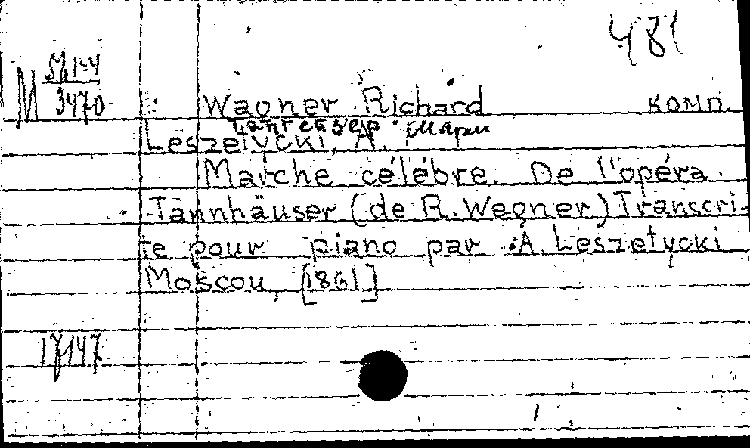 481
М 3470
Wagner Richard комп.
Тангейзер. Марш
Leszetycki, A.
Marche célébre. De l'opéra
Tannhäuser (de R. Wegner) Transcri-
te pour piano par A. Leszetycki
Moscou, [1861]
17147